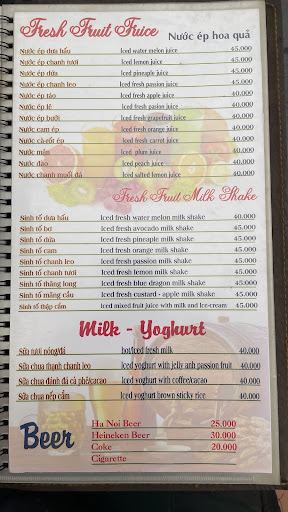 Fresh Fruit Fruice Nước ép hoa quả
Nước ép dưa hấu Iced water melon juice 45.000
Nước ép chanh tươi Iced lemon juice 45.000
Nước ép dứa Iced pineaple juice 45.000
Nước ép chanh leo Iced fresh pasion juice 45.000
Nước ép táo Iced fresh apple juice 40.000
Nước ép lê Iced fresh pasion juice 40.000
Nước ép bưởi Iced fresh grapefruit juice 40.000
Nước cam ép Iced fresh orange juice 40.000
Nước cà-rốt ép Iced fresh carrot juice 40.000
Nước mận Iced plum juice 40.000
Nước đào Iced peach juice 40.000
Nước chanh muối đá Iced salted lemon juice 40.000
Fresh Fruit Milk Shake
Sinh tố dưa hấu Iced fresh water melon milk shake 40.000
Sinh tố bơ Iced fresh avocado milk shake 45.000
Sinh tố dứa Iced fresh pineaple milk shake 45.000
Sinh tố cam Iced fresh orange milk shake 45.000
Sinh tố chanh leo Iced fresh passion milk shake 45.000
Sinh tố chanh tươi Iced fresh lemon milk shake 45.000
Sinh tố thăng long Iced fresh blue dragon milk shake 45.000
Sinh tố mãng cầu Iced fresh custard - apple milk shake 45.000
Sinh tố thập cẩm Iced mixed fruit juice with milk and Ice-cream 45.000
Milk - Yoghurt
Sữa tươi nóng/đá hot/iced fresh milk 40.000
Sữa chua thạnh chanh leo Iced yoghurt with jelly anh passion fruit 40.000
Sữa chua đánh đá cà phê/cacao Iced yoghurt with coffee/cacao 40.000
Sữa chua nếp cẩm Iced yoghurt brown sticky rice 40.000
Beer
Ha Noi Beer 25.000
Heineken Beer 30.000
Coke 20.000
Cigurette